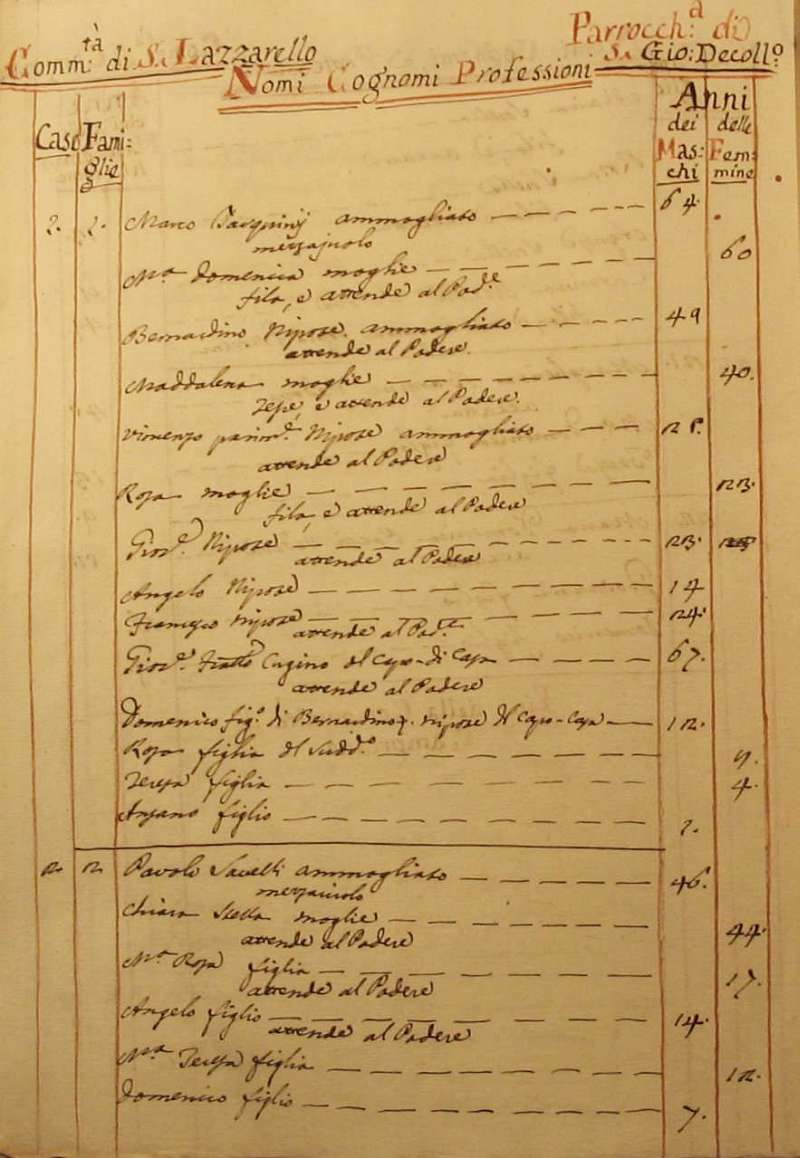 Comm:tà di S. Lazzarello
Parrocch:a di
S. Gio: Decollo
Nomi Cognomi Professioni
Anni
Case Fami:
glie
dei delle
Mas: Fem:
chi mine
Marco ammogliato 64.
mezzajuolo
Ma Domenica moglie 60
fila, e attende al Pode
Bernardino Nipote ammogliato 49
attende al Podere.
Maddalena moglie 40.
Tesse, e attende al Podere.
Vincenzo Nipote ammogliato
attende al Podere
Rosa moglie 23.
fila, e attende al Podere
Giov: Nipote 23.
attende al Podere
Angelo Nipote 14
Francesco nipote 24.
attende al Pode
Giov: Cugino del Capo di Casa 67.
attende al Podere
Domenico figo di Bernardino nipote del Capo-Casa 12.
Rosa figlia del Suddo 9.
Teresa figlia 4.
figlio
2. 2. Pavolo ammogliato 46.
mezzaiuolo
Chiara Stella moglie 44.
attende al Podere
Ma Rosa figlia 17.
attende al Podere
Angelo figlio 14.
attende al Podere
Ma Teresa figlia 12.
Domenico figlio 7.